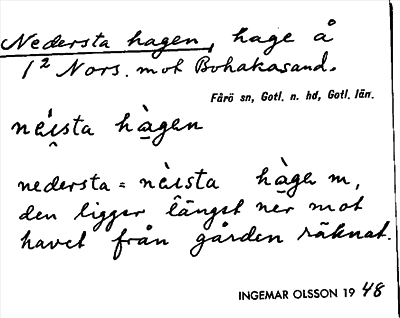 Nedersta hagen, hage å
1² Nors. mot Bohakasand.
Fårö sn, Gotl. n. hd, Gotl. län.
nèi̯sta hàgen
nedersta = nèista hàgen m,
den ligger längst ner mot
havet från gården räknat.
INGEMAR OLSSON 19 48